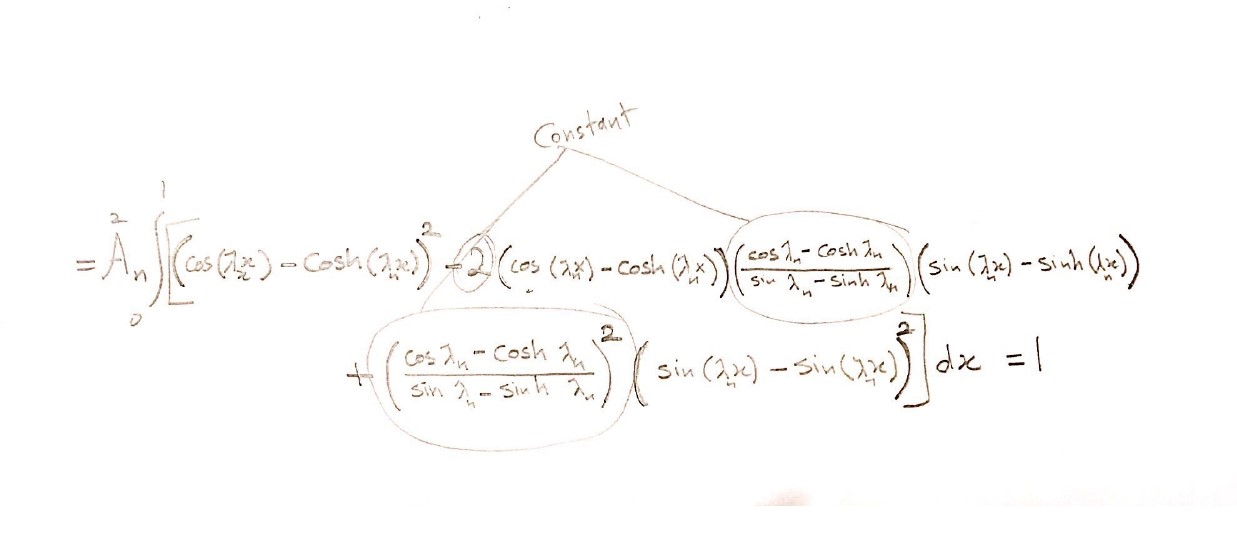 Constant
= A_n^2 ∫_0^1 [(cos(λ_n x) - Cosh(λ_n x))^2 - 2 (cos(λ_n x) - cosh(λ_n x)) ((cos λ_n - Cosh λ_n)/(sin λ_n - sinh λ_n)) (sin(λ_n x) - sinh(λ_n x))
+ ((cos λ_n - Cosh λ_n)/(sin λ_n - sinh λ_n))^2 (sin(λ_n x) - sin(λ_n x))^2] dx = 1